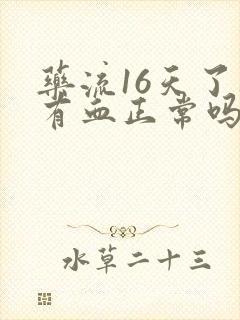 药流16天了
有血正常吗
水草二十三